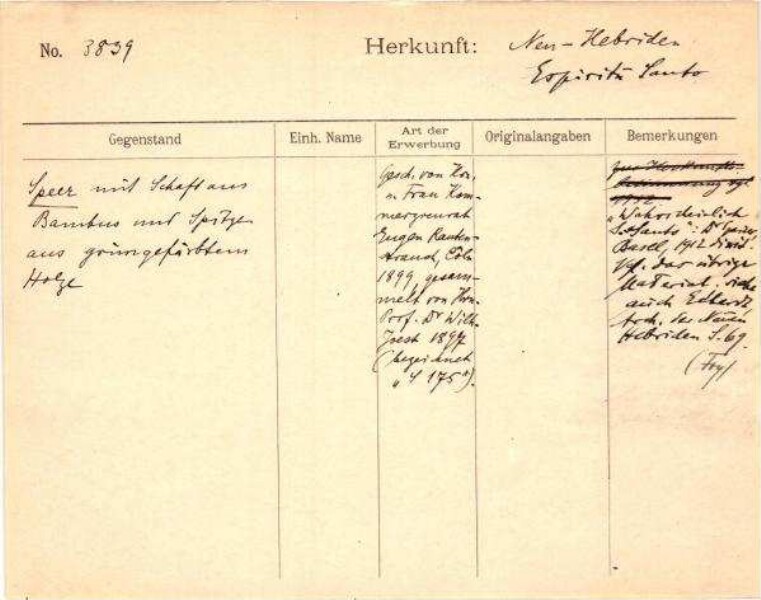 No. 3839
Herkunft: Neu-Hebriden
Espiritu Santo
Gegenstand
Einh. Name
Art der
Erwerbung
Originalangaben
Bemerkungen
Speer mit Schaft aus
Bambus und Spitze
aus grüngefärbtem
Holze
Gesch. von Hrn.
u. Frau Kom-
merzienrat
Eugen Rauten-
strauch, Cöln
1899, gesam-
melt von Hrn.
Prof. Dr Wilh.
Joest 1897
(bezeichnet
„S 175").
"Wahrscheinlich
S. Santo": Dr Speiser,
Basel, 1912
Vgl. das übrige
Material, siehe
auch
der Neuen
Hebriden S. 69.
(Foy)